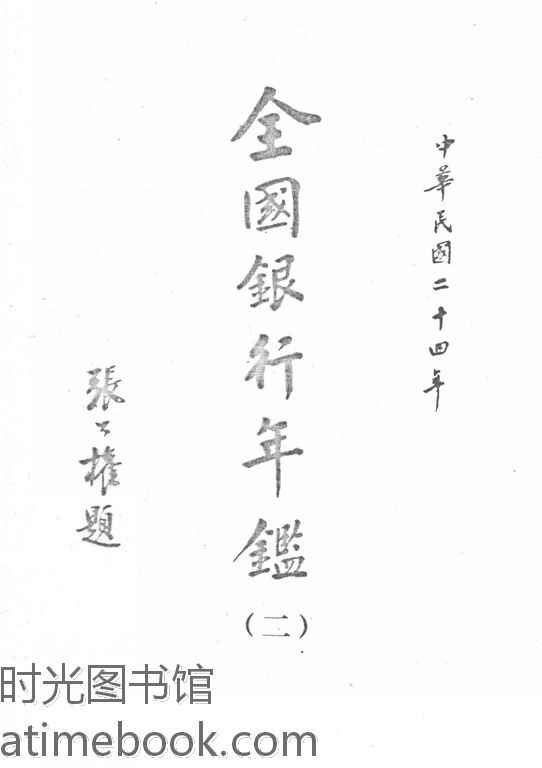 中華民國二十四年
全國銀行年鑑
(二)
張公權題
时光图书馆
atimebook.com